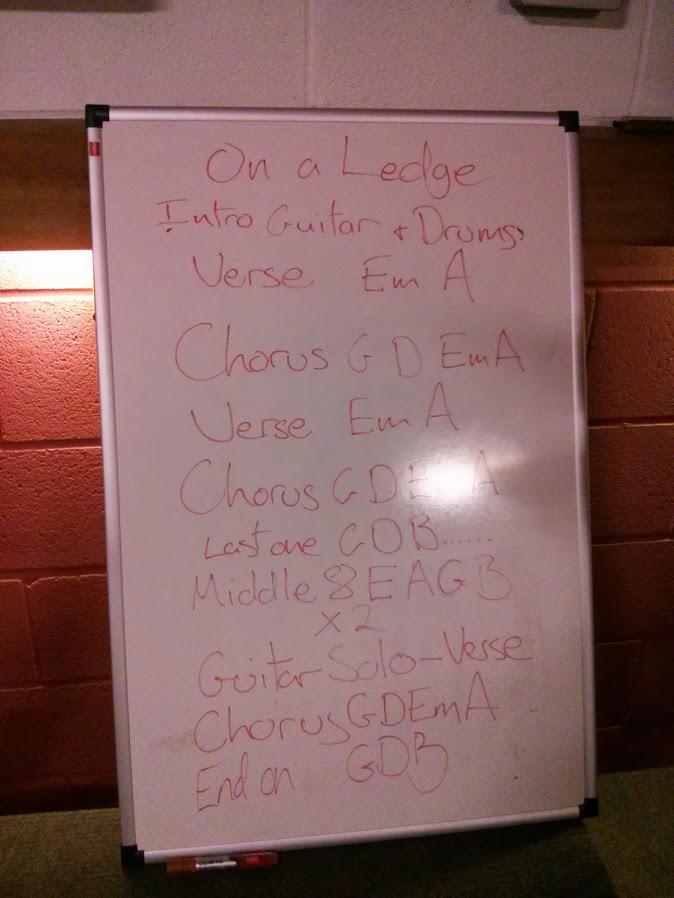 On a Ledge
Intro Guitar + Drums
Verse Em A
Chorus G D Em A
Verse Em A
Chorus G D E A
Last one G D B.......
Middle 8 E A G B
x 2
Guitar Solo - Verse
Chorus G D Em A
End on G D B